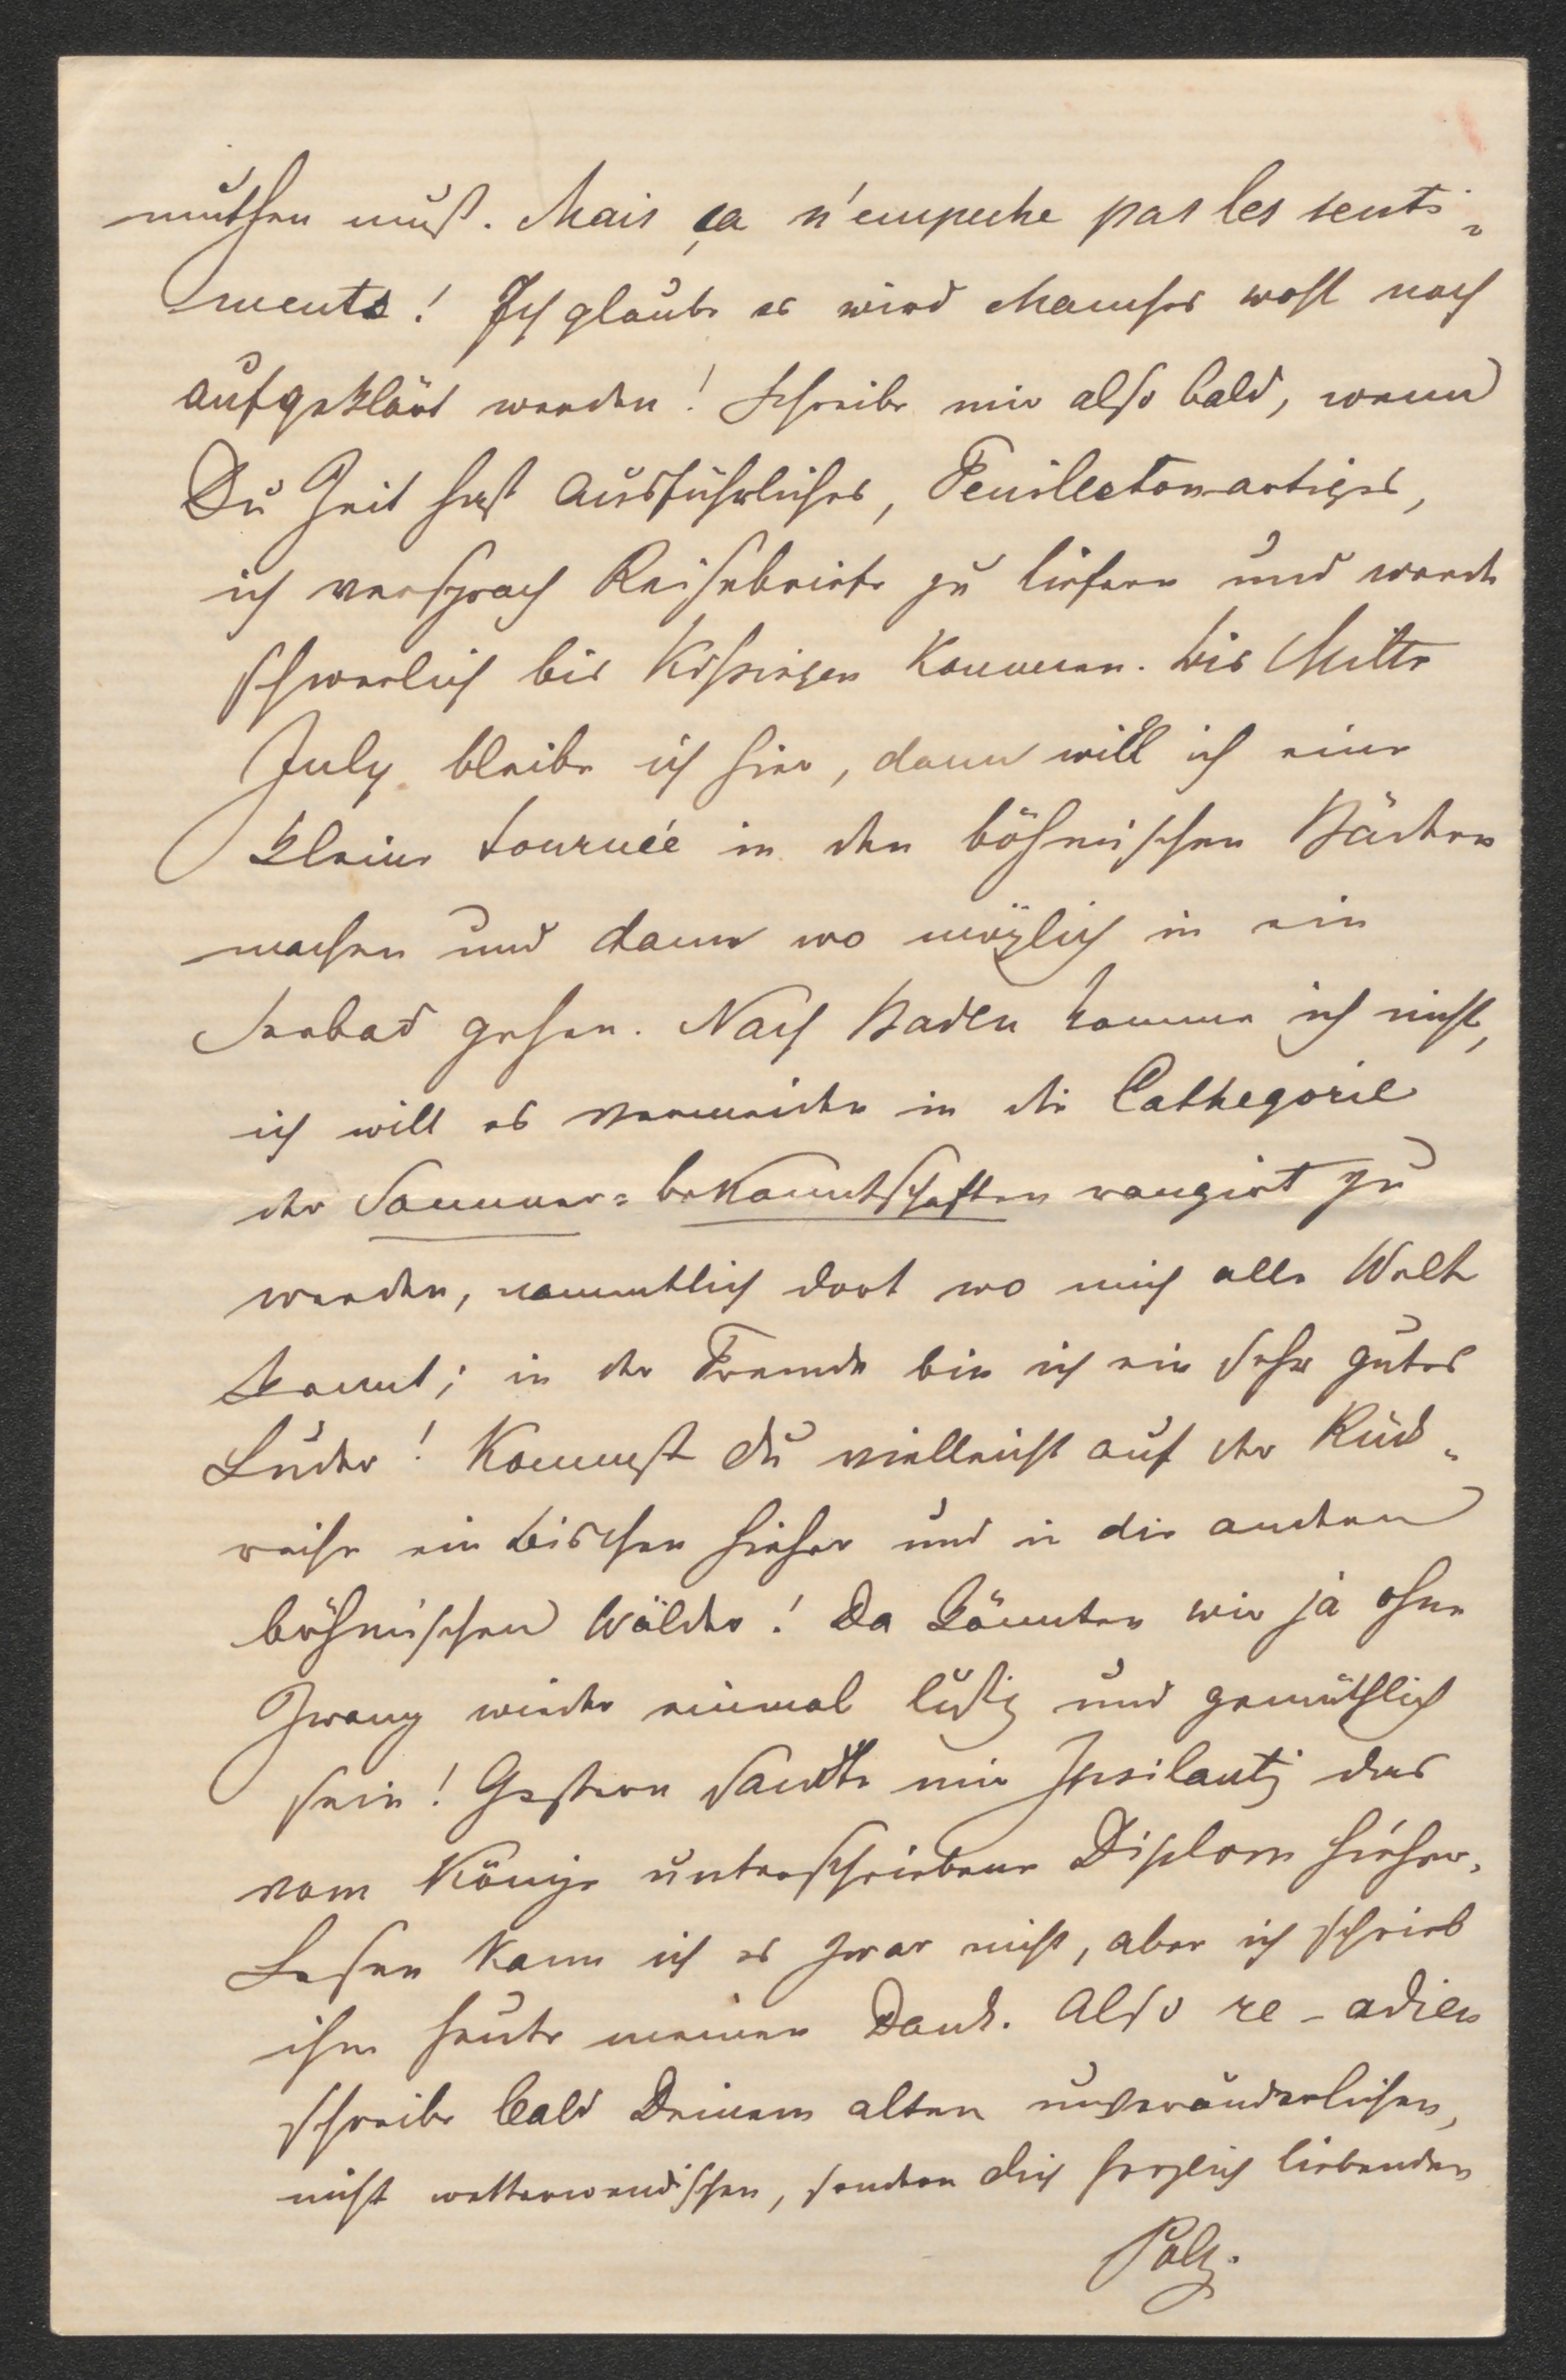 muthen muß. Mais ça n'empeche pas les senti-
ments! Ich glaube es wird Manches wohl noch
aufgeklärt werden! Schreibe mir also bald, wenn
Du Zeit hast Ausführliches, Feuilletonartiges,
ich versprach Reisebriefe zu liefern und werde
schwerlich bis Kissingen kommen. Bis Mitte
July bleibe ich hier, dann will ich eine
kleine Tournée in den böhmischen Bädern
machen und dann wo möglich in ein
Seebad gehen. Nach Baden komme ich nicht,
ich will es vermeiden in die Cathegorie
der Sommer-bekanntschaften rangirt zu
werden, namentlich dort wo mich alle Welt
kennt; in der Fremde bin ich ein sehr gutes
Luder! Kommst Du vielleicht auf der Rück-
reise ein bischen hieher und in die andern
böhmischen Wälder! Da könnten wir ja ohne
Zwang wieder einmal lustig und gemüthlich
sein! Gestern sandte mir Ypsilanti das
vom Könige unterschriebene Diplom hieher.
Lesen kann ich es zwar nicht, aber ich schrieb
ihm heute meinen Dank. Also re-adieu
schreibe bald Deinem alten unveränderlichen,
nicht wetterwendischen, sondern Dich herzlich liebenden